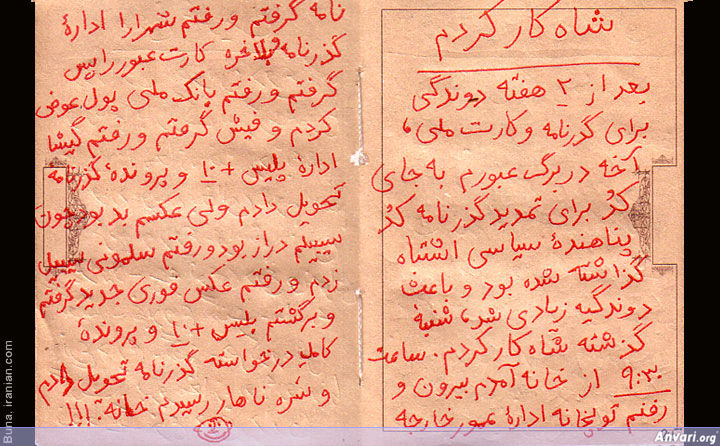 شاه کار کردم
بعد از ۲ هفته دوندگی
برای گذرنامه و کارت ملی،
آخه در برگ عبورم به جای
کُد برای تمدید گذرنامه کُد
پناهندهٔ سیاسی اشتباه
گذاشته شده بود و باعث
دوندگیه زیادی شد، شنبه
گذشته شاه کار کردم. ساعت
۹:۳۰ از خانه آمدم بیرون و
رفتم توپخانه ادارهٔ عبور خارجه
نامه گرفتم و رفتم شهرآرا ادارهٔ
گذرنامه و بالاخره کارت عبور را پس
گرفتم و رفتم بانک ملی پول عوض
کردم و فیش گرفتم و رفتم گیشا
ادارهٔ پلیس +۱۰ و پروندهٔ گذرنامه
تحویل دادم ولی عکسم بد بود چون
سیبیلم دراز بود و رفتم سلمونی سیبیل
زدم و رفتم عکس فوری جدید گرفتم
و برگشتم پلیس +۱۰ و پروندهٔ
کامل درخواسته گذرنامه تحویل دادم
و سره ناهار رسیدم خانه! !!!
Buna. iranian.com
Anvari.org